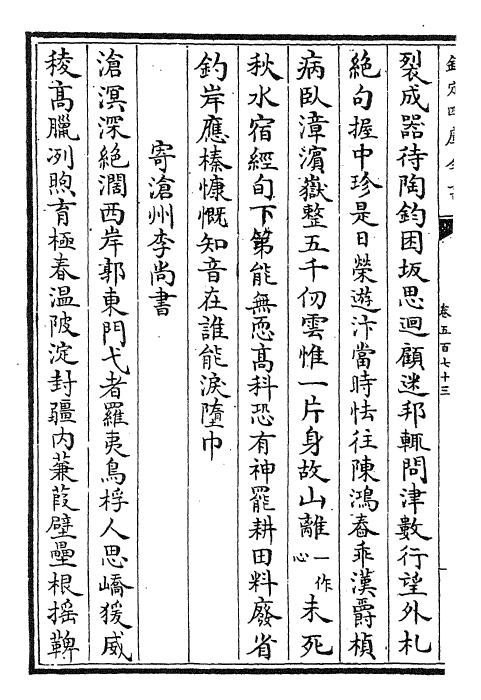 裂成器待陶鈞困坂思迴顧迷邦輒問津數行望外札
絕句握中珍是日榮遊汴當時怯往陳鴻春乖漢爵楨
病臥漳濱嶽整五千仞雲惟一片身故山離一作心未死
秋水宿經旬下第能無恧高科恐有神罷耕田料廢省
釣岸應榛慷慨知音在誰能淚墮巾
寄滄州李尚書
滄溟深絕濶西岸郭東門弋者羅夷鳥桴人思嶠猨威
稜高臘冽煦育極春溫陂淀封疆内蒹葭壁壘根摇鞞
欽定四庫全書
卷五百七十三